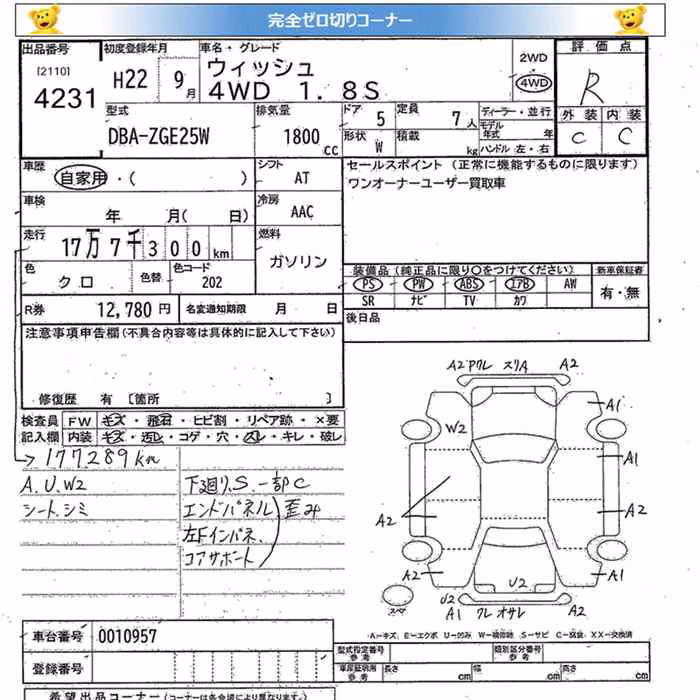 完全ゼロ切りコーナー
出品番号 初度登録年月 車名・グレード 評価点
[2110] 4231 H22 9月 ウィッシュ 2WD R
4WD 1.8S 4WD
外装 内装
C C
型式 排気量 ドア 5 定員 7人 ディーラー・並行
DBA-ZGE25W 1800cc 形状 W 積載 kg モデル年式 年
ハンドル 左・右
車歴 シフト セールスポイント (正常に機能するものに限ります)
自家用・( ) AT ワンオーナーユーザー買取車
車検 年 月( 日) 冷房 AAC
走行 17万7千300km 燃料 ガソリン
色 クロ 色替 色コード 202
装備品 (純正品に限り○をつけてください) 新車保証書
PS PW ABS エアB AW 有・無
SR ナビ TV カワ
R券 12,780円 名変通知期限 月 日
後日品
注意事項申告欄(不具合内容等は具体的に記入して下さい)
修復歴 有 [箇所 ]
検査員 FW キズ・飛石・ヒビ割・リペア跡・×要
記入欄 内装 キズ・汚レ・コゲ・穴・スレ・キレ・破レ
177289km
A.U.W2 下廻りS.一部C
シート.シミ エンドパネル 歪み
左Fインパネ.
コアサポート
A2 ワレ スリA A2
A1
W2
A1
A2
A2
A2 A1
スペア
U2 U2
A1 ワレ オサレ A2
A-キズ、E-エクボ U-凹み W-補修跡 S-サビ C-腐食 XX-交換済
車台番号 0010957
登録番号
型式指定番号 参考 類別区分番号 参考
車庫証明用 参考 長さ cm 幅 cm 高さ cm
希望出品コーナー (コーナーは各会場により異なります)